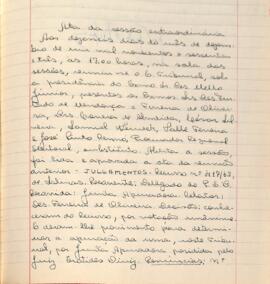 Ata da sessão extraordinária
Aos dezesseis dias do mês de dezem-
bro de mil novecentos e sessenta
e três, às 17.00 horas, na sala das
sessões, reuniu-se o E. Tribunal, sob
a presidência do Exmo. Sr. Des. Mello
Júnior, presentes os Exmos. Srs. Des. Fur-
tado de Mendonça e Ferreira de Olivei-
ra, Drs. de Almeida,
e José Pinto Procurador Regional
Eleitoral, substituto. Aberta a sessão,
foi lida e aprovada a ata da reunião
anterior. - JULGAMENTOS - Recurso n.º /63,
de Salinas. Recorrente: Delegado do P.S.D.
Recorrida: Junta Apuradora. Relator:
Des. Ferreira de Oliveira. Decisão: conhe-
ceram do recurso, por votação unânime.
E deram-lhe provimento para determi-
nar a apuração da urna, neste Tribu-
nal, por Junta Apuradora presidida pelo
Juiz Diniz. n.º